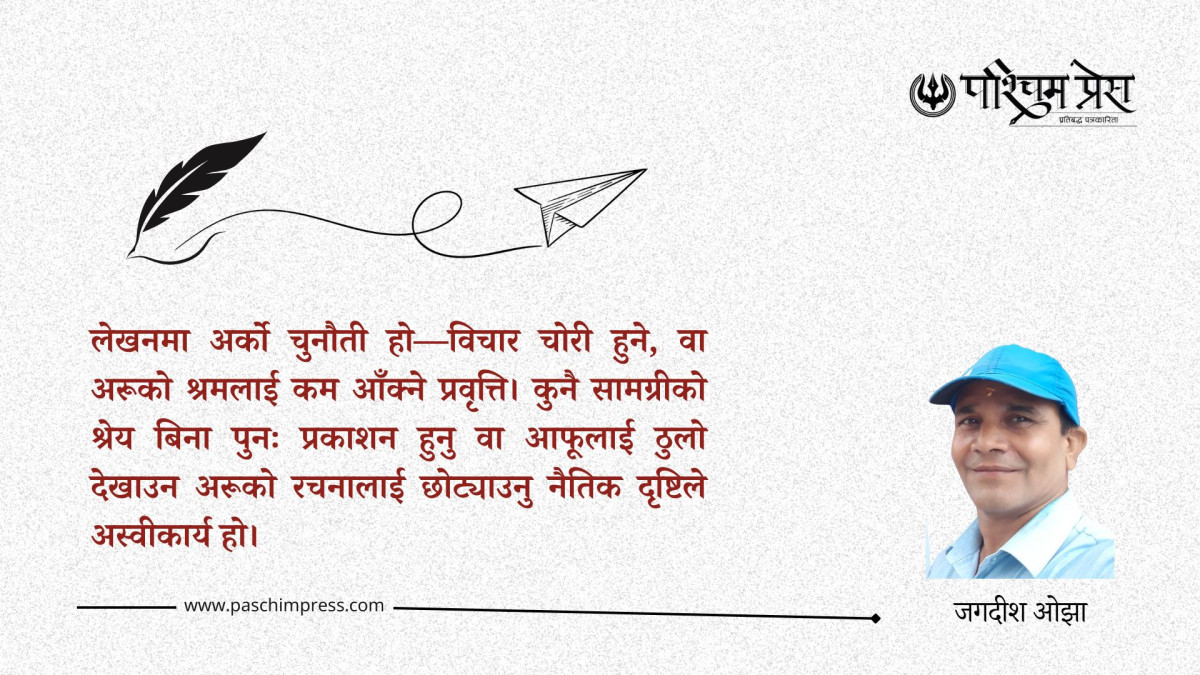 पश्चिम प्रेस
प्रतिबद्ध पत्रकारिता
लेखनमा अर्को चुनौती हो—विचार चोरी हुने, वा
अरूको श्रमलाई कम आँक्ने प्रवृत्ति। कुनै सामग्रीको
श्रेय बिना पुनः प्रकाशन हुनु वा आफूलाई ठुलो
देखाउन अरूको रचनालाई छोट्याउनु नैतिक दृष्टिले
अस्वीकार्य हो।
www.paschimpress.com
जगदीश ओझा